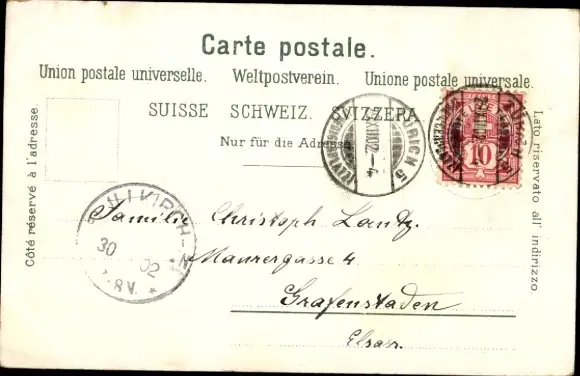 Carte postale.
Union postale universelle. Weltpostverein. Unione postale universale.
SUISSE SCHWEIZ. SVIZZERA
Nur für die Adresse
Côté réservé à l'adresse.
Lato riservato all' indirizzo.
10
XII.02.-4
ZÜRICH 5
30 02
8 V.
Familie Christoph Lantz.
Maurergasse 4
Grafenstaden
Elsass.